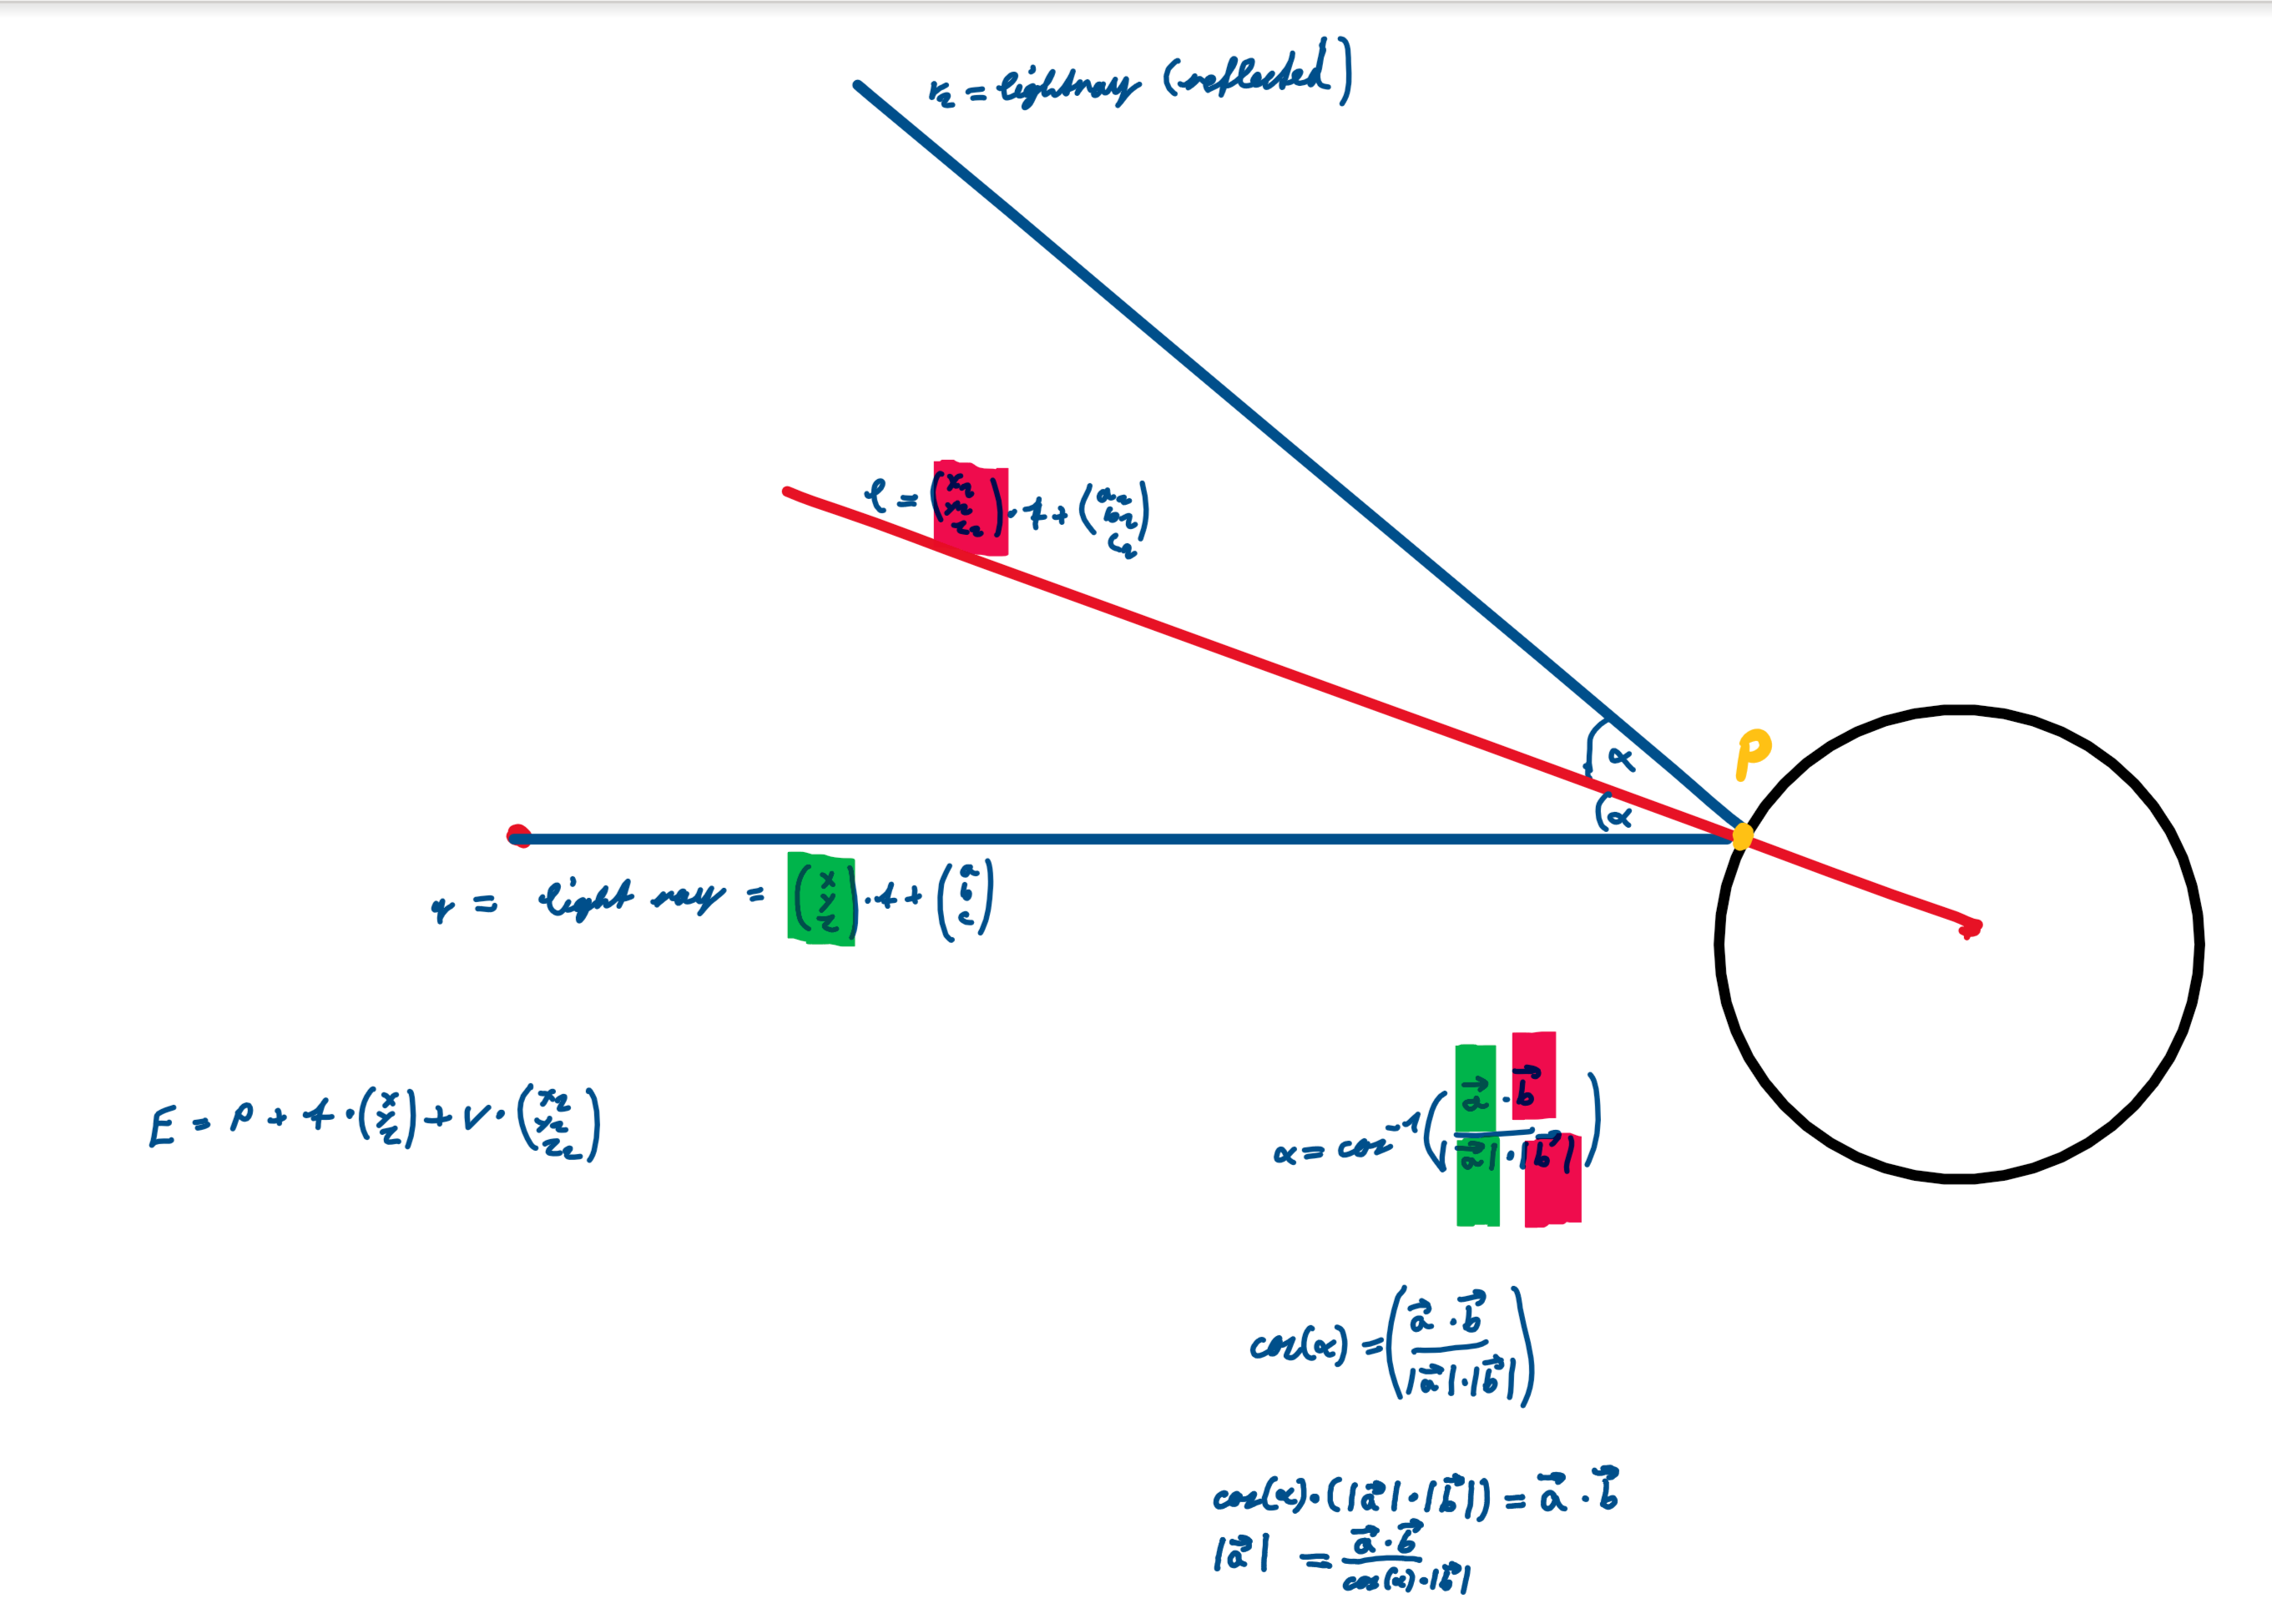 r₂ = lightray (reflected)
l = (x₂ y₂ z₂) · t + (a₂ b₂ c₂)
P
α
α
r = light ray = (x y z) · t + (a b c)
E = P + t · (x y z) + v · (x₂ y₂ z₂)
α = cos⁻¹(a⃗ · b⃗ / |a⃗| · |b⃗|)
cos(α) = (a⃗ · b⃗ / |a⃗| · |b⃗|)
cos(α) · (|a⃗| · |b⃗|) = a⃗ · b⃗
|a⃗| = a⃗ · b⃗ / cos(α) · |b⃗|